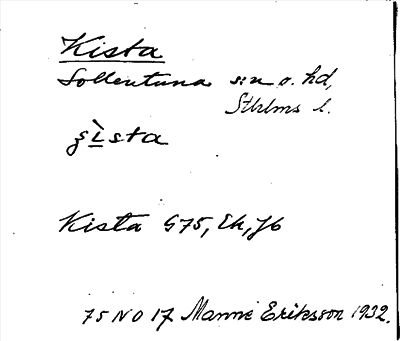 Kista
Sollentuna sn o. hd,
Sthlms l.
ʂı̀sta
Kista G75, Ek, Jb
75 NO 17 Manne Eriksson 1932.